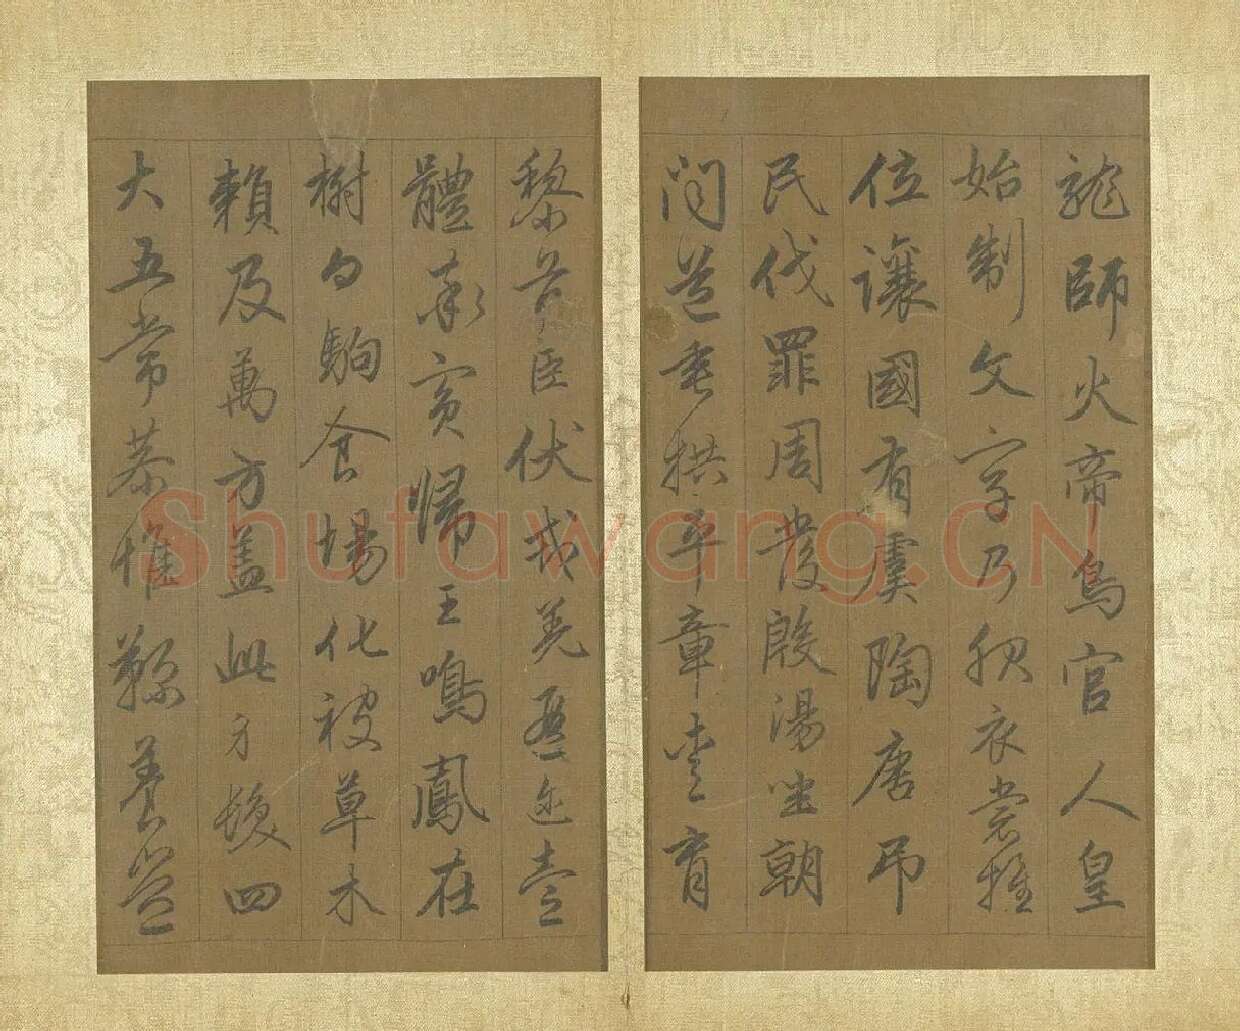 龍師火帝鳥官人皇
始制文字乃服衣裳推
位讓國有虞陶唐吊
民伐罪周發殷湯坐朝
問道垂拱平章愛育
黎首臣伏戎羌遐邇壹
體率賓歸王鳴鳳在
樹白駒食場化被草木
賴及萬方蓋此身髮四
大五常恭惟鞠養豈
Shufawang.CN